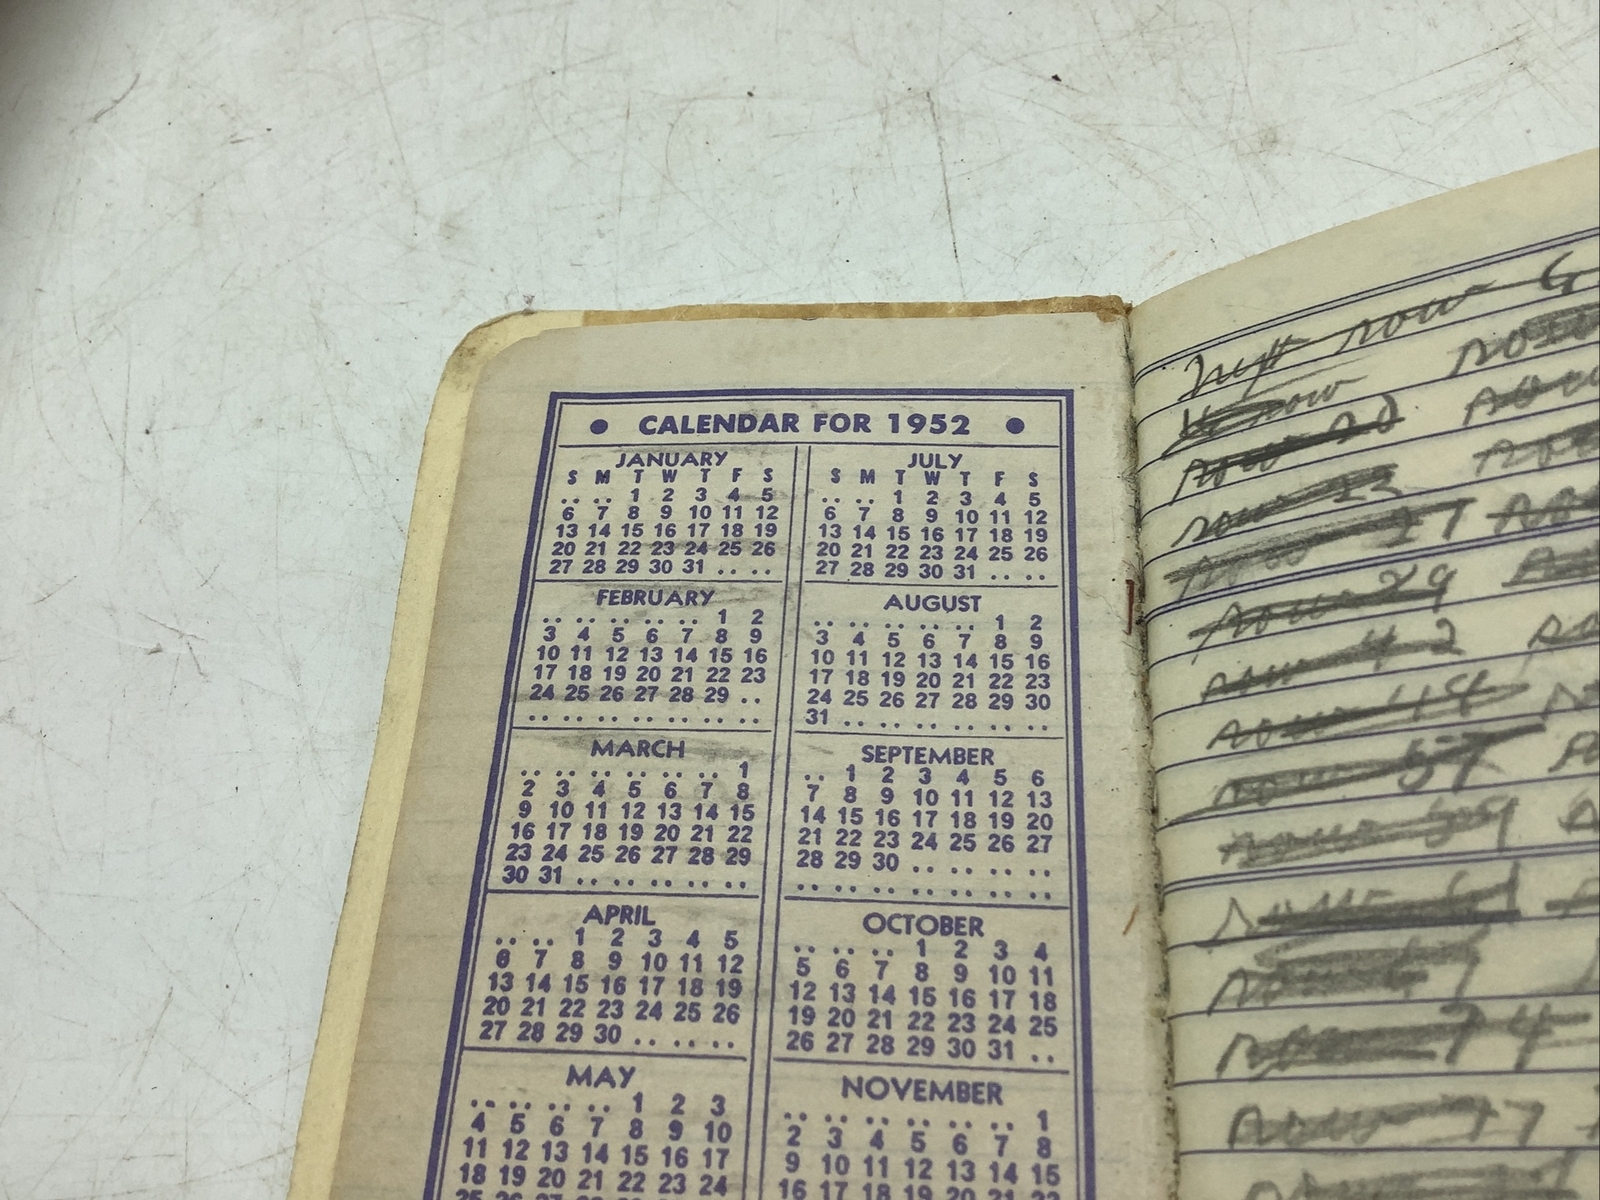 • CALENDAR FOR 1952 •
JANUARY
S M T W T F S
.. .. 1 2 3 4 5
6 7 8 9 10 11 12
13 14 15 16 17 18 19
20 21 22 23 24 25 26
27 28 29 30 31 .. ..
FEBRUARY
.. .. .. .. .. 1 2
3 4 5 6 7 8 9
10 11 12 13 14 15 16
17 18 19 20 21 22 23
24 25 26 27 28 29 ..
.. .. .. .. .. .. ..
MARCH
.. .. .. .. .. .. 1
2 3 4 5 6 7 8
9 10 11 12 13 14 15
16 17 18 19 20 21 22
23 24 25 26 27 28 29
30 31 .. .. .. .. ..
APRIL
.. .. 1 2 3 4 5
6 7 8 9 10 11 12
13 14 15 16 17 18 19
20 21 22 23 24 25 26
27 28 29 30 .. .. ..
MAY
.. .. .. .. 1 2 3
4 5 6 7 8 9 10
11 12 13 14 15 16 17
18 19 20 21 22 23 24
JULY
S M T W T F S
.. .. 1 2 3 4 5
6 7 8 9 10 11 12
13 14 15 16 17 18 19
20 21 22 23 24 25 26
27 28 29 30 31 .. ..
AUGUST
.. .. .. .. .. 1 2
3 4 5 6 7 8 9
10 11 12 13 14 15 16
17 18 19 20 21 22 23
24 25 26 27 28 29 30
31 .. .. .. .. .. ..
SEPTEMBER
.. 1 2 3 4 5 6
7 8 9 10 11 12 13
14 15 16 17 18 19 20
21 22 23 24 25 26 27
28 29 30 .. .. .. ..
.. .. .. .. .. .. ..
OCTOBER
.. .. .. 1 2 3 4
5 6 7 8 9 10 11
12 13 14 15 16 17 18
19 20 21 22 23 24 25
26 27 28 29 30 31 ..
NOVEMBER
.. .. .. .. .. .. 1
2 3 4 5 6 7 8
9 10 11 12 13 14 15
16 17 18 19 20 21 22
row
row
row
row 27
row 29
row 42
row 44
row 57
row 59
row 74
row 77